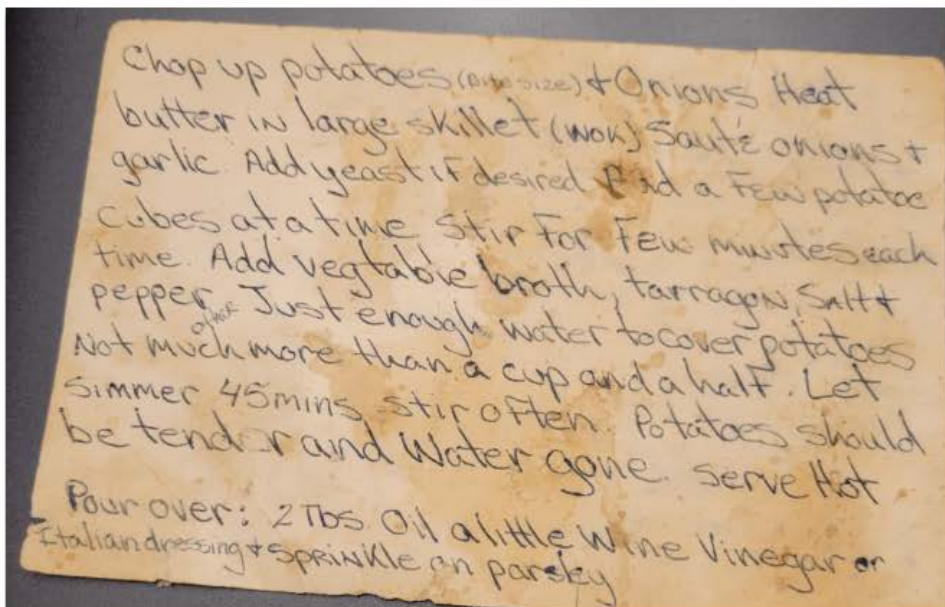 Chop up potatoes (Bite size) & Onions Heat
butter in large skillet (wok) Sauté onions &
garlic. Add yeast if desired. Add a Few potatoe
cubes at a time stir For Few minutes each
time. Add vegtable broth, tarragon, Salt &
pepper. Just enough water to cover potatoes
Not much more than a cup and a half. Let
Simmer 45 mins stir often. Potatoes should
be tender and Water gone. serve Hot
Pour over: 2 Tbs Oil a little Wine Vinegar or
Italian dressing & SPRINKLE on parsley